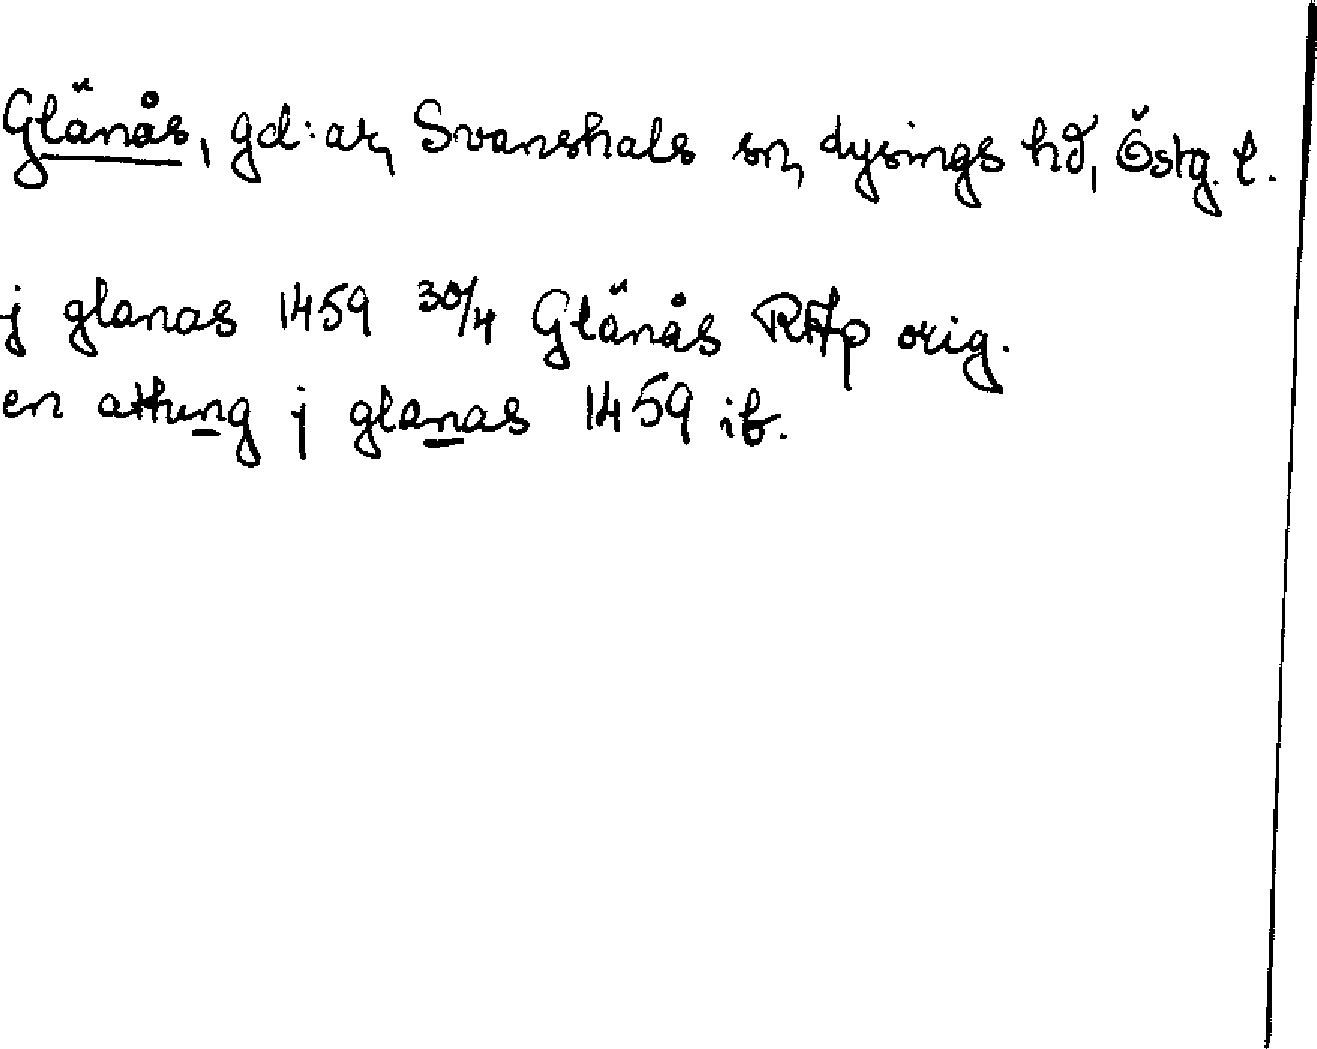 Glänås, gd:ar, Svanshals sn, dysings hd, Östg. l.
j glanas 1459 30/4 Glänås RAp orig.
en attung j glanas 1459 ib.